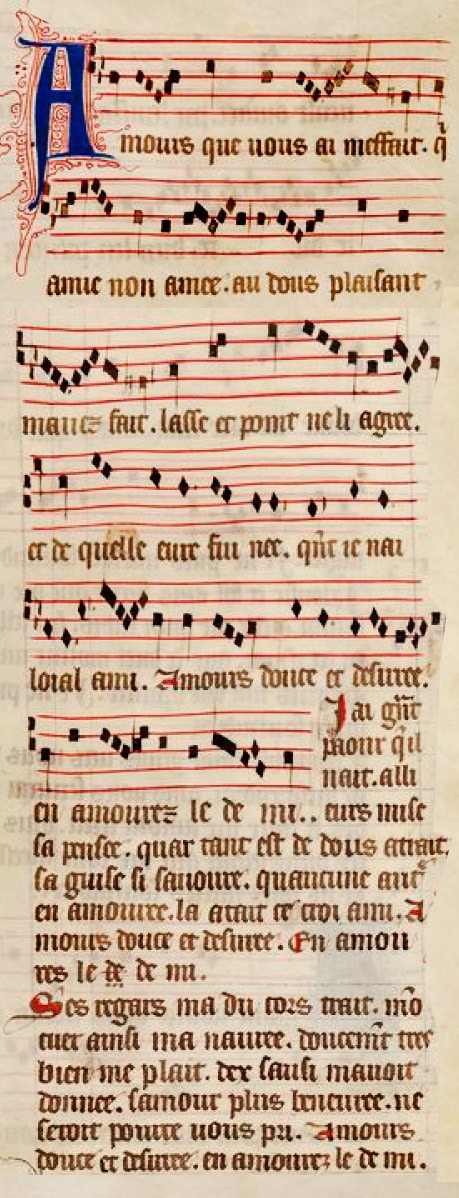 Amours que vous ai meffait. q̃
amie non amee. au dous plaisant
mauez fait. lasse et point ne li agree.
et de quelle eure fui nee. qñt ie nai
loial ami. Amours douce et desiree.
J ai gñt
paour q̃l
nait. alli
en amourez le de mi.. eurs mise
sa pensee. quar tant est de dous atrait,
sa guise si sauoure. quaucune aut͛
en amouree. la atait ce croi ami. A
mours douce et desiree. En amou
res le de de mi.
Ses regars ma du cors trait. mõ
cuer ainsi ma nauree. doucem̃t tres
bien me plait. dex sausi mauoit
donnee. samour plus beneuree. ne
seroit pouure uous pri. Amours
douce et desiree. en amourez le de mi.